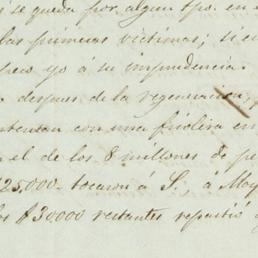 i se queda por algun tpo. en e
las primeras victimas; si e
pero yo á su imprudencia.
despues de la regeneracion,
ntentan con una friolera en
n el de los 8 millones de pe
$25.000 tocaron á S., á May
los $30.000 restantes repartió